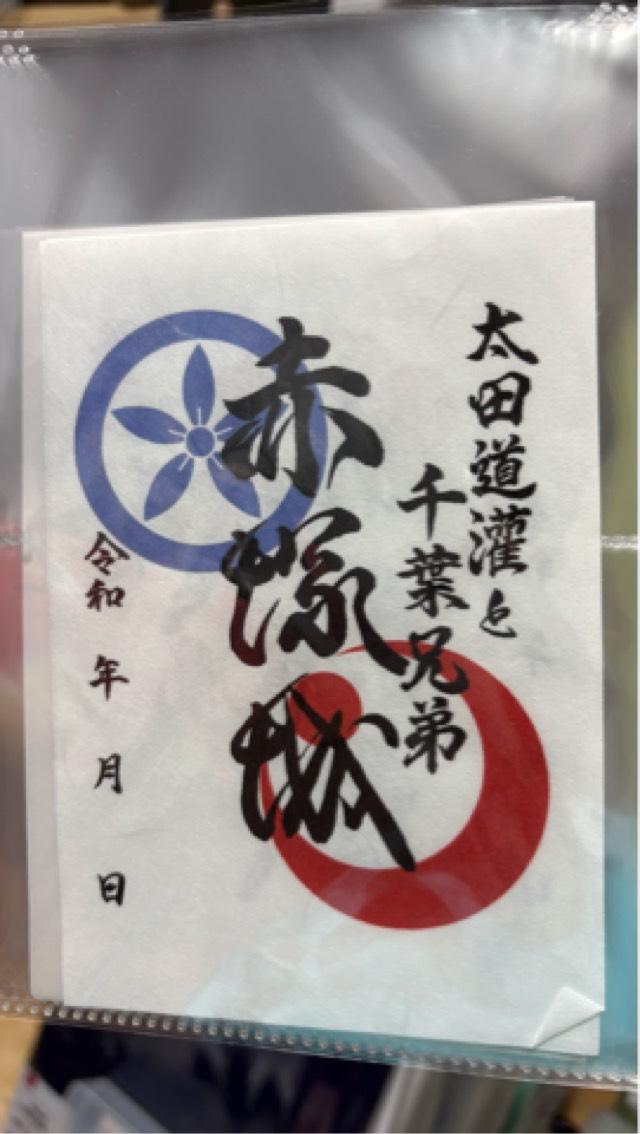 太田道灌と
千葉兄弟
赤塚城
令和 年 月 日